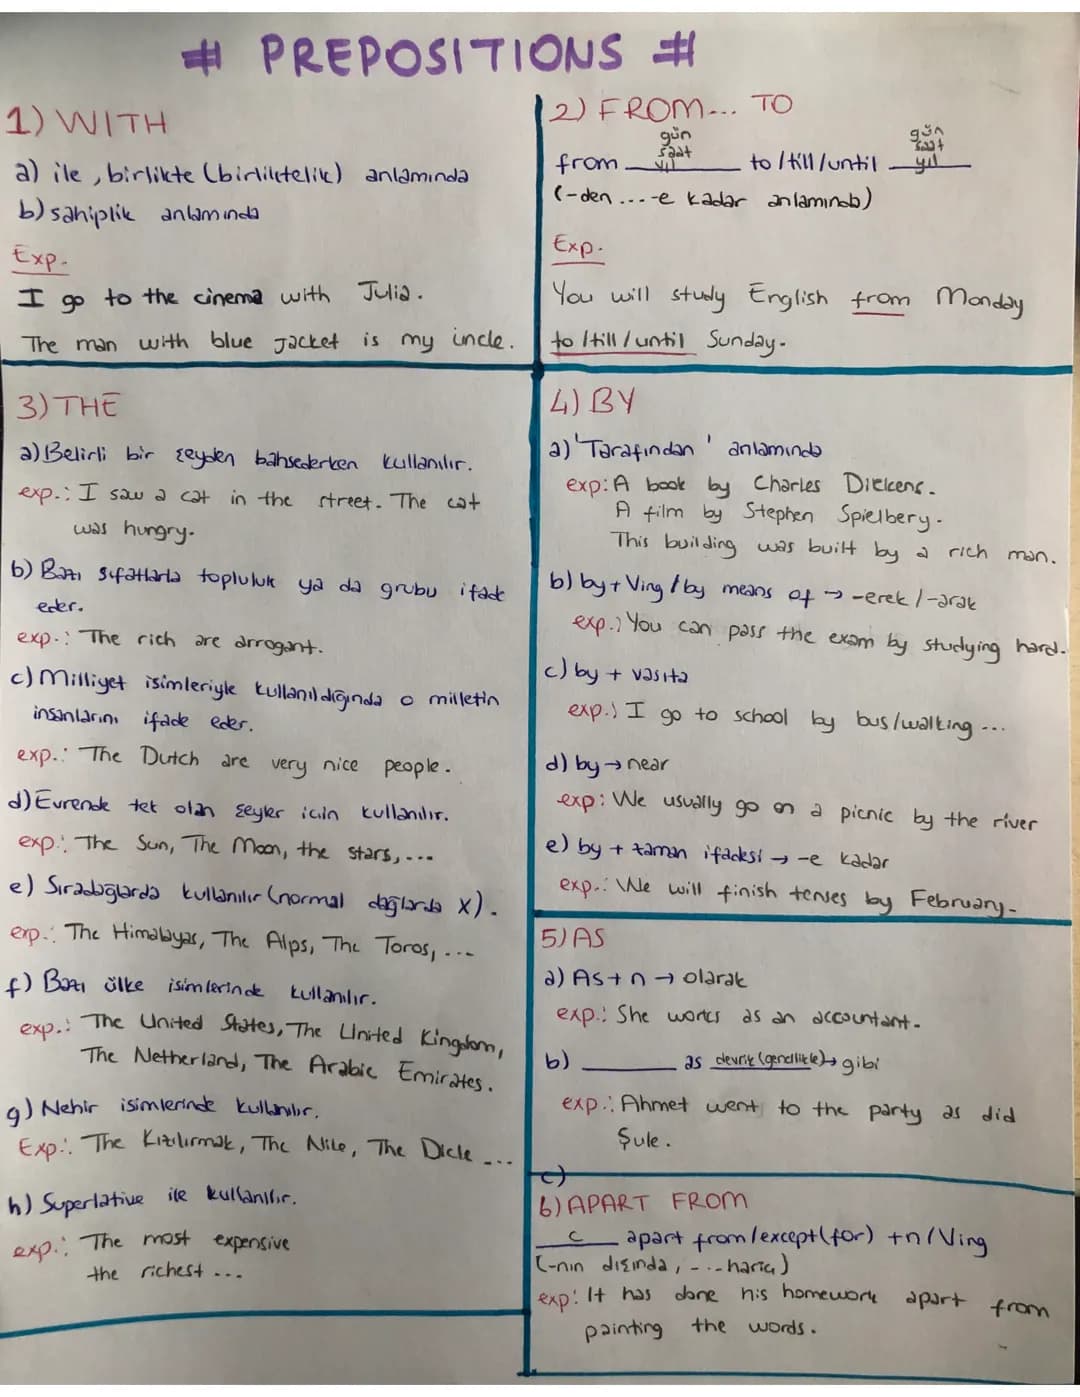 # PREPOSITIONS #
1) WITH
a) ile, birlikte (birliktelik) anlamında
b) sahiplik anlamında
Exp.
I go to the cinema with Julia.
The man with blue jacket is my incle.
2) FROM... TO
gün gün
saat saat
from yıl to/till/until yıl
(-den ... -e kadar anlamında)
Exp.
You will study English from Monday
to/till/until Sunday.
3) THE
a) Belirli bir şeyden bahsederken kullanılır.
exp.: I saw a cat in the street. The cat
was hungry.
b) Bazı sıfatlarla topluluk ya da grubu ifade
eder.
exp.: The rich are arrogant.
c) Milliyet isimleriyle kullanıldığında o milletin
insanlarını ifade eder.
exp.: The Dutch are very nice people.
d) Evrende tek olan şeyler için kullanılır.
exp.: The Sun, The Moon, the stars, ...
e) Sıradağlarda kullanılır (normal dağlarda X).
exp.: The Himalayas, The Alps, The Toros, ...
f) Bazı ülke isimlerinde kullanılır.
exp.: The United States, The United Kingdom,
The Netherland, The Arabic Emirates.
g) Nehir isimlerinde kullanılır.
Exp.: The Kızılırmak, The Nile, The Dicle ...
h) Superlative ile kullanılır.
exp.: The most expensive
the richest ...
4) BY
a) 'Tarafından' anlamında
exp: A book by Charles Dickens.
A film by Stephen Spielbery.
This building was built by a rich man.
b) by + Ving / by means of → -erek / -arak
exp.: You can pass the exam by studying hard.
c) by + vasıta
exp.: I go to school by bus/walking ...
d) by → near
exp: We usually go on a picnic by the river
e) by + zaman ifadesi → -e kadar
exp.: We will finish tenses by February.
5) AS
a) As + n → olarak
exp.: She works as an accountant.
b) ______ as devrik (genellikle) → gibi
exp.: Ahmet went to the party as did
Şule.
c)
6) APART FROM
c apart from/except (for) + n / Ving
(-nın dışında, ... hariç)
exp: It has done his homework apart from
painting the words.